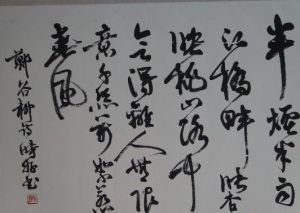 半煙半雨
江橋畔映杏
映桃山路中
会得離人無限
意千絲萬絮惹
春風
鄭谷柳诗